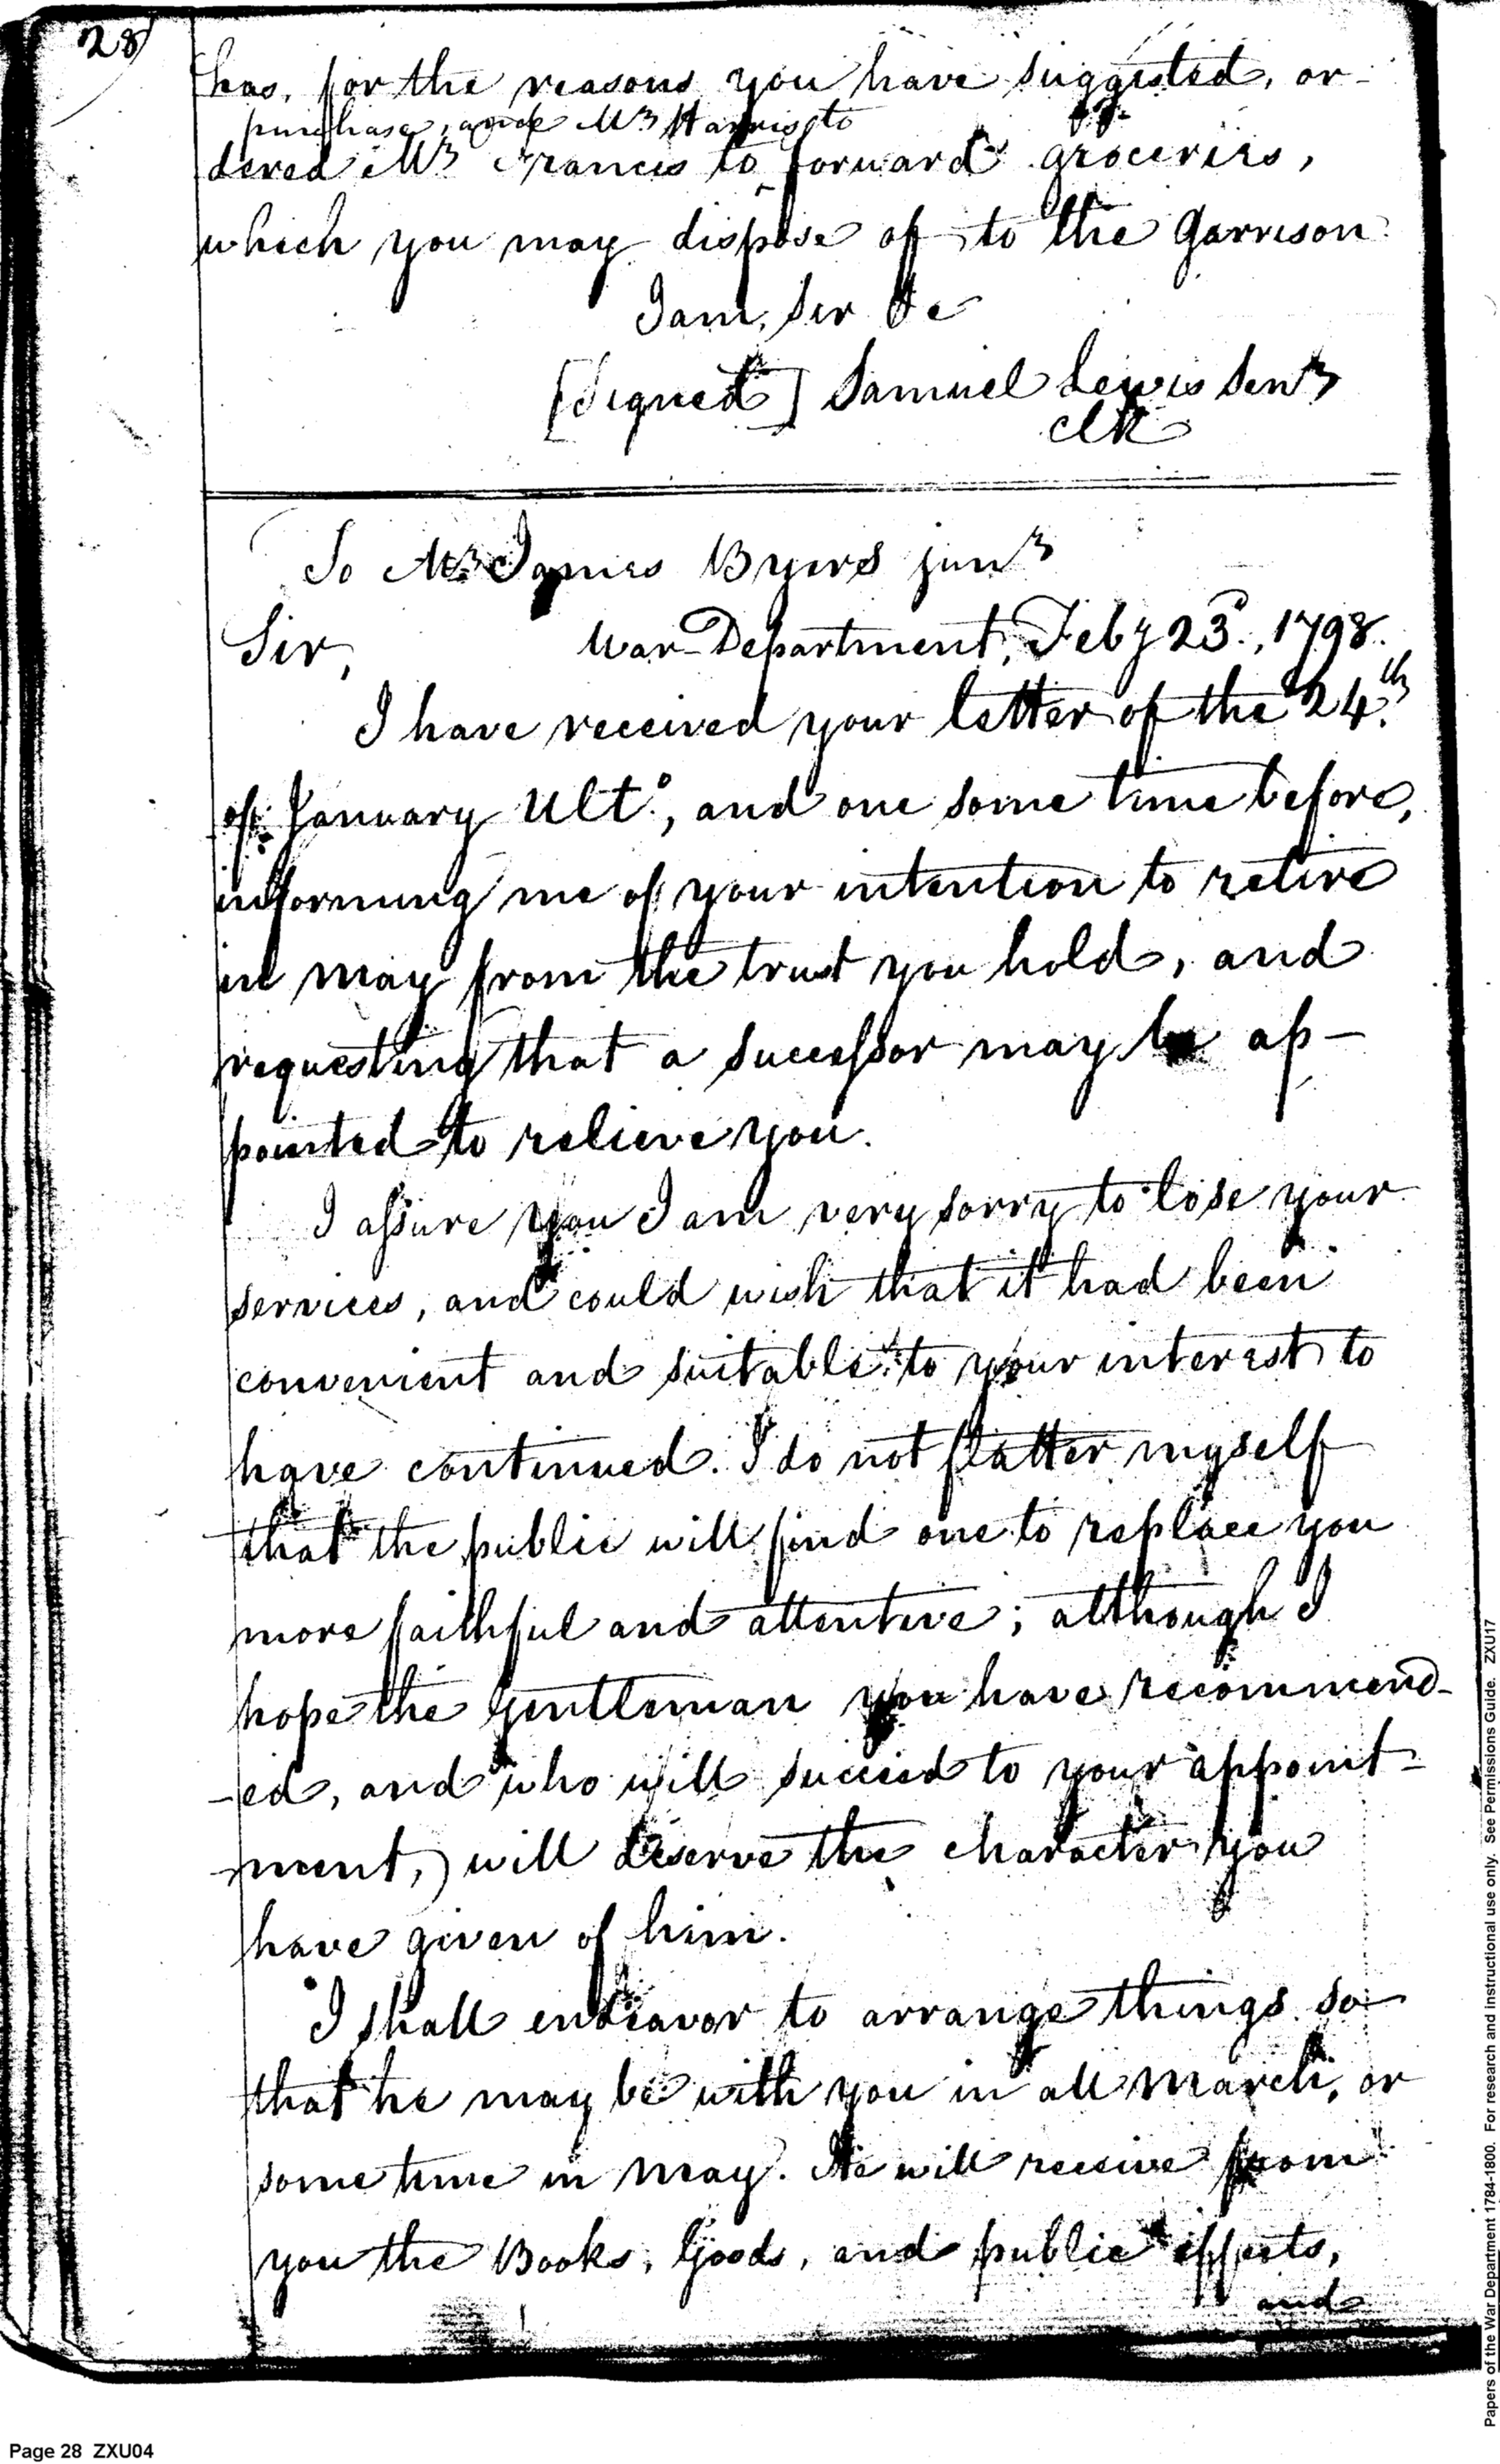 28
has, for the reasons you have suggested, or-
purchase, and Mr Harris to
dered Mr Francis to forward groceries,
which you may dispose of to the Garrison
I am, Sir &c
[Signed] Samuel Lewis Senr
Clk
To Mr James Byers junr
Sir, War-Department, Feby 23d., 1798.
I have received your letter of the 24th.
of January Ulto., and one some time before,
informing me of your intention to retire
in may from the trust you hold, and
requesting that a successor may be ap-
pointed to relieve you.
I assure you I am very sorry to lose your
services, and could wish that it had been
convenient and suitable to your interest to
have continued. I do not flatter myself
that the public will find one to replace you
more faithful and attentive; although I
hope the gentleman you have recommend-
-ed, and who will succeed to your appoint-
-ment, will deserve the character you
have given of him.
I shall endeavor to arrange things so
that he may be with you in all March, or
some time in May. He will receive from
you the Books, Goods, and public effects,
and
Page 28 ZXU04
Papers of the War Department 1784-1800. For research and instructional use only. See Permissions Guide. ZXU17